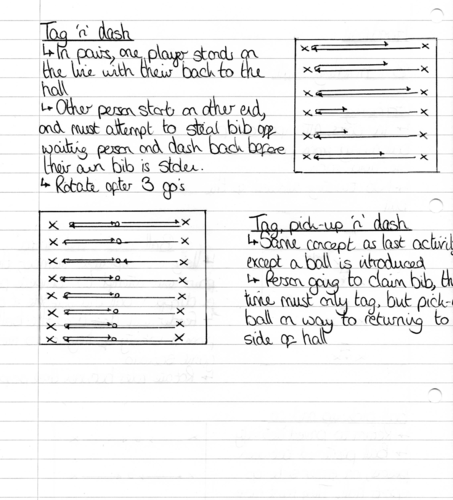 Tag 'n' dash
↳ In pairs, one player stands on
the line with their back to the
hall
↳ Other person starts on other end,
and must attempt to steal bib off
waiting person and dash back before
their own bib is stolen.
↳ Rotate after 3 go's
Tag, pick-up 'n' dash
↳ Same concept as last activit
except a ball is introduced
↳ Person going to claim bib, th
time must only tag, but pick-
ball on way to returning to
side of hall